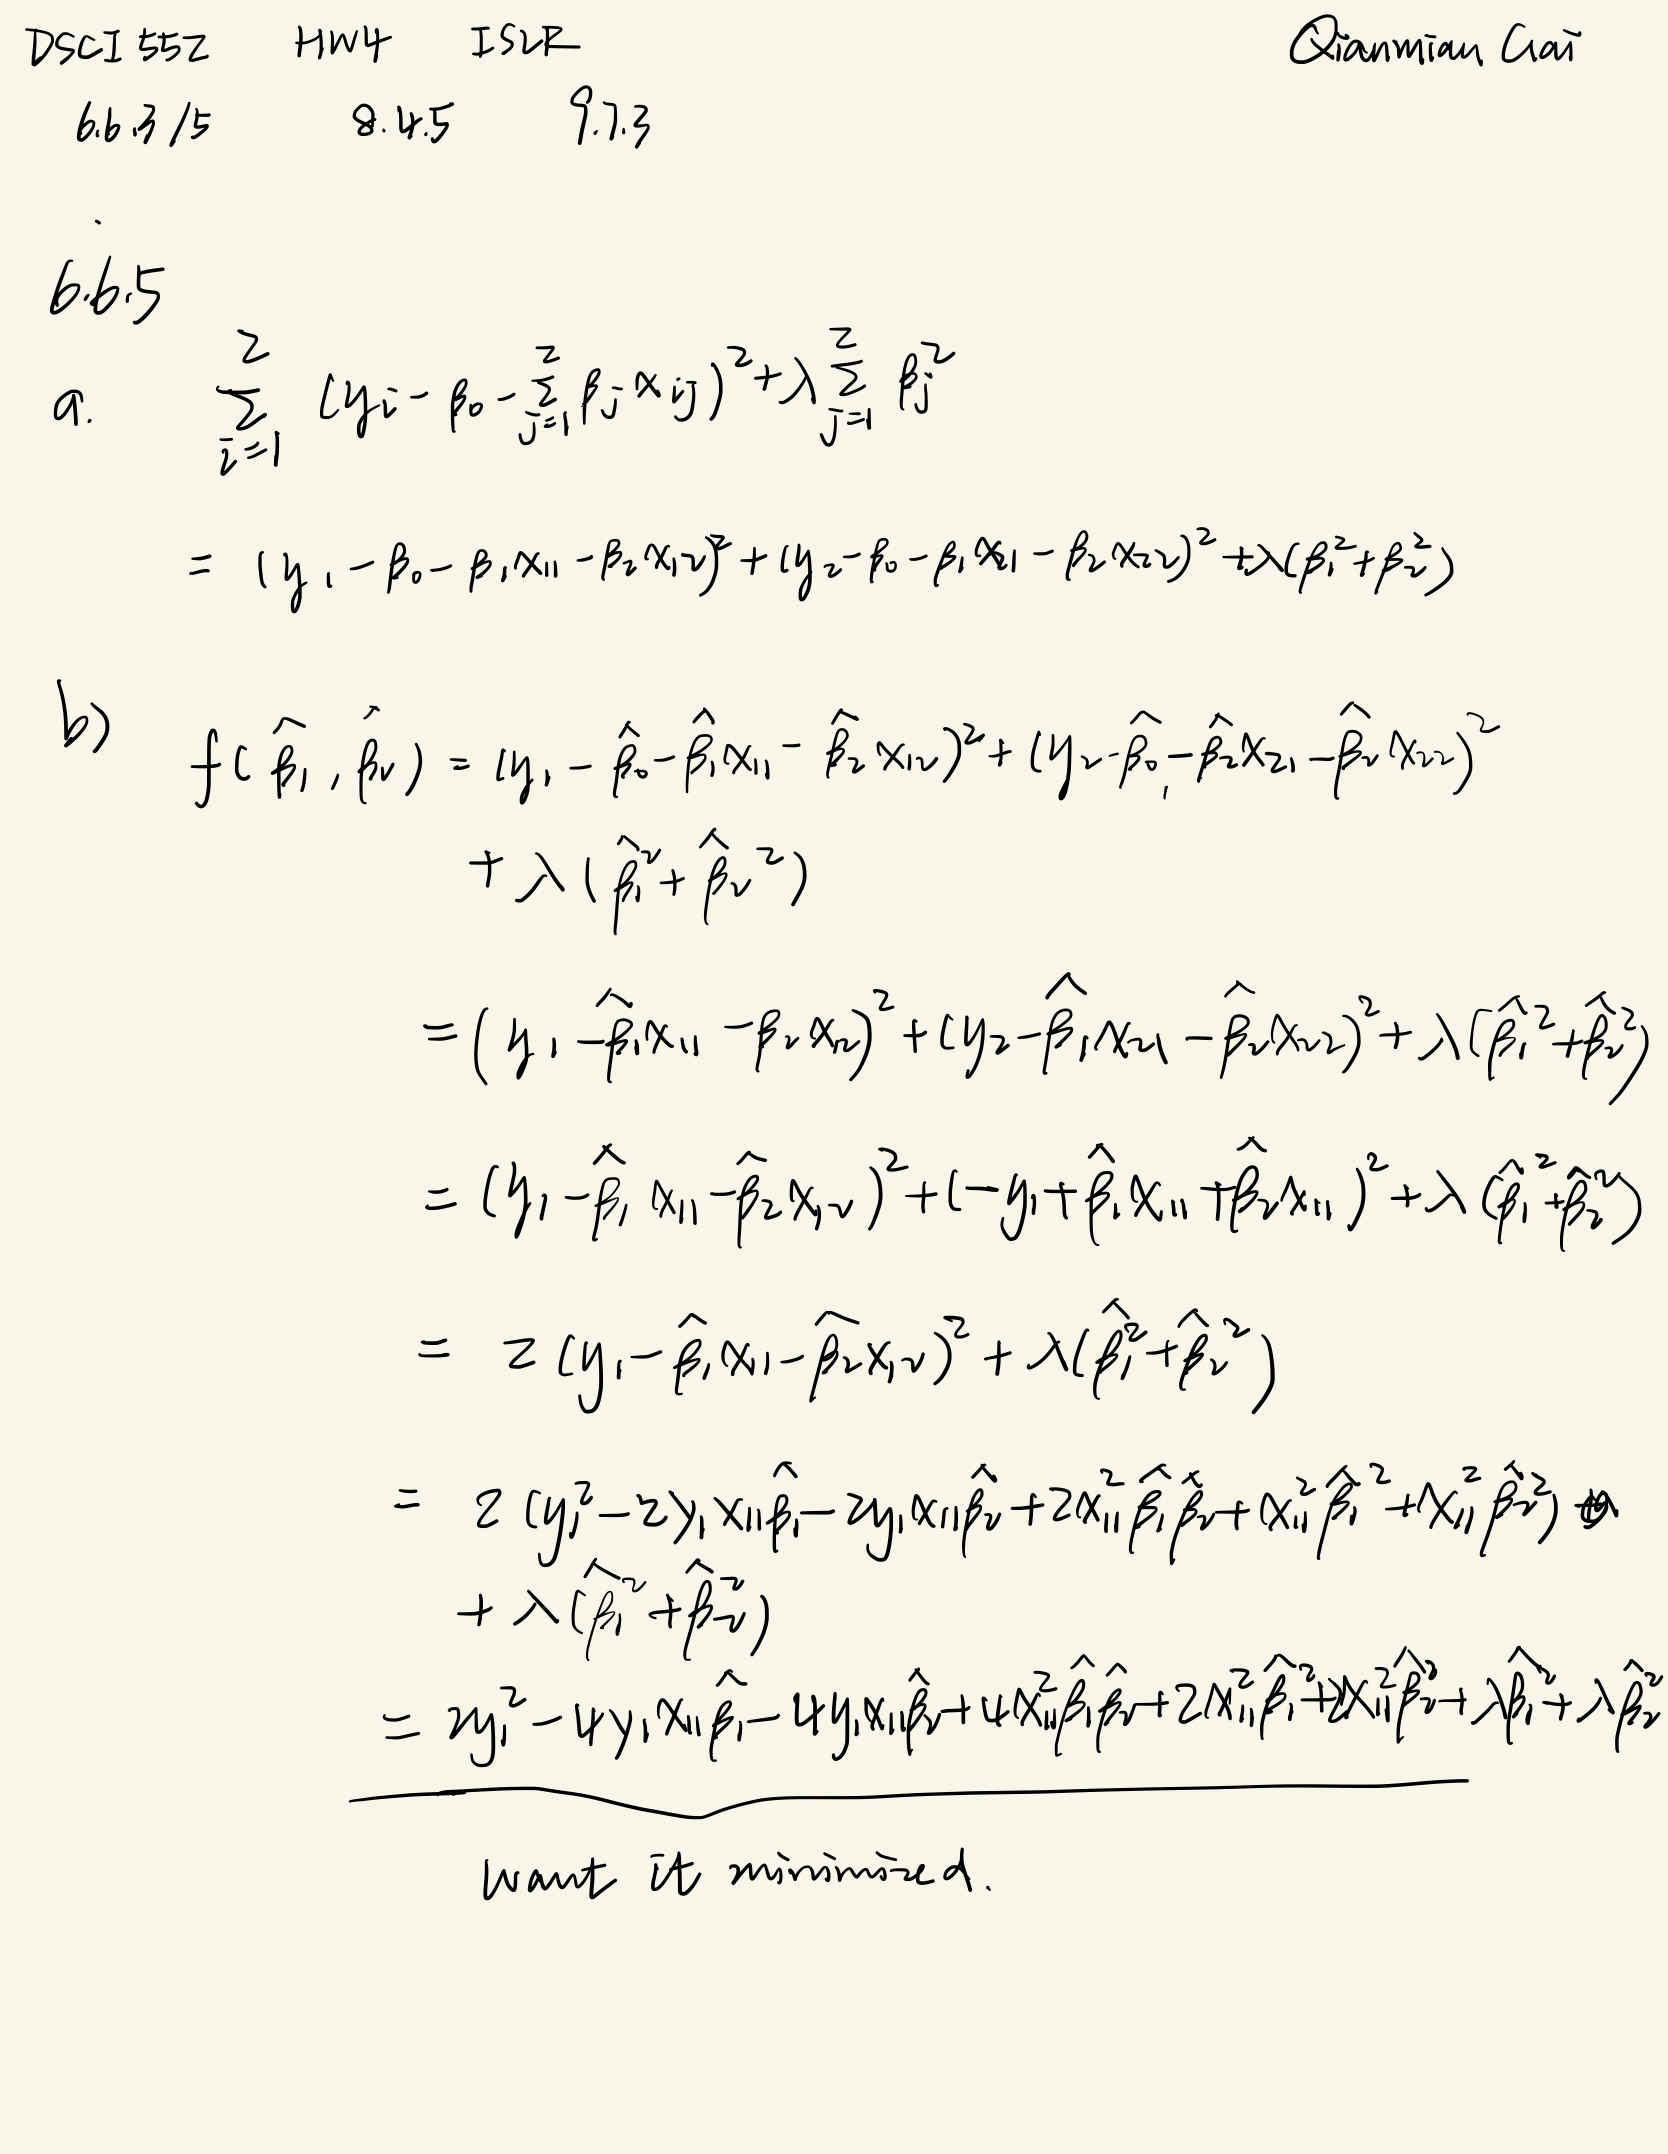 DSCI 552 HW4 ISLR Qianmian Cai
6.6.3/5 8.4.5 9.7.3
6.6.5
a. Σ_{i=1}^{2} (y_i - β_0 - Σ_{j=1}^{2} β_j x_{ij})^2 + λ Σ_{j=1}^{2} β_j^2
= (y_1 - β_0 - β_1 x_{11} - β_2 x_{12})^2 + (y_2 - β_0 - β_1 x_{21} - β_2 x_{22})^2 + λ(β_1^2 + β_2^2)
b) f(β̂_1, β̂_2) = (y_1 - β̂_0 - β̂_1 x_{11} - β̂_2 x_{12})^2 + (y_2 - β̂_0 - β̂_2 x_{21} - β̂_2 x_{22})^2
+ λ(β̂_1^2 + β̂_2^2)
= (y_1 - β̂_1 x_{11} - β_2 x_{12})^2 + (y_2 - β̂_1 x_{21} - β̂_2 x_{22})^2 + λ(β̂_1^2 + β̂_2^2)
= (y_1 - β̂_1 x_{11} - β̂_2 x_{12})^2 + (-y_1 + β̂_1 x_{11} + β̂_2 x_{11})^2 + λ(β̂_1^2 + β̂_2^2)
= 2(y_1 - β̂_1 x_{11} - β̂_2 x_{12})^2 + λ(β̂_1^2 + β̂_2^2)
= 2(y_1^2 - 2y_1 x_{11} β̂_1 - 2y_1 x_{11} β̂_2 + 2x_{11}^2 β̂_1 β̂_2 + x_{11}^2 β̂_1^2 + x_{11}^2 β̂_2^2)
+ λ(β̂_1^2 + β̂_2^2)
= 2y_1^2 - 4y_1 x_{11} β̂_1 - 4y_1 x_{11} β̂_2 + 4x_{11}^2 β̂_1 β̂_2 + 2x_{11}^2 β̂_1^2 + 2x_{11}^2 β̂_2^2 + λβ̂_1^2 + λβ̂_2^2
want it minimized.